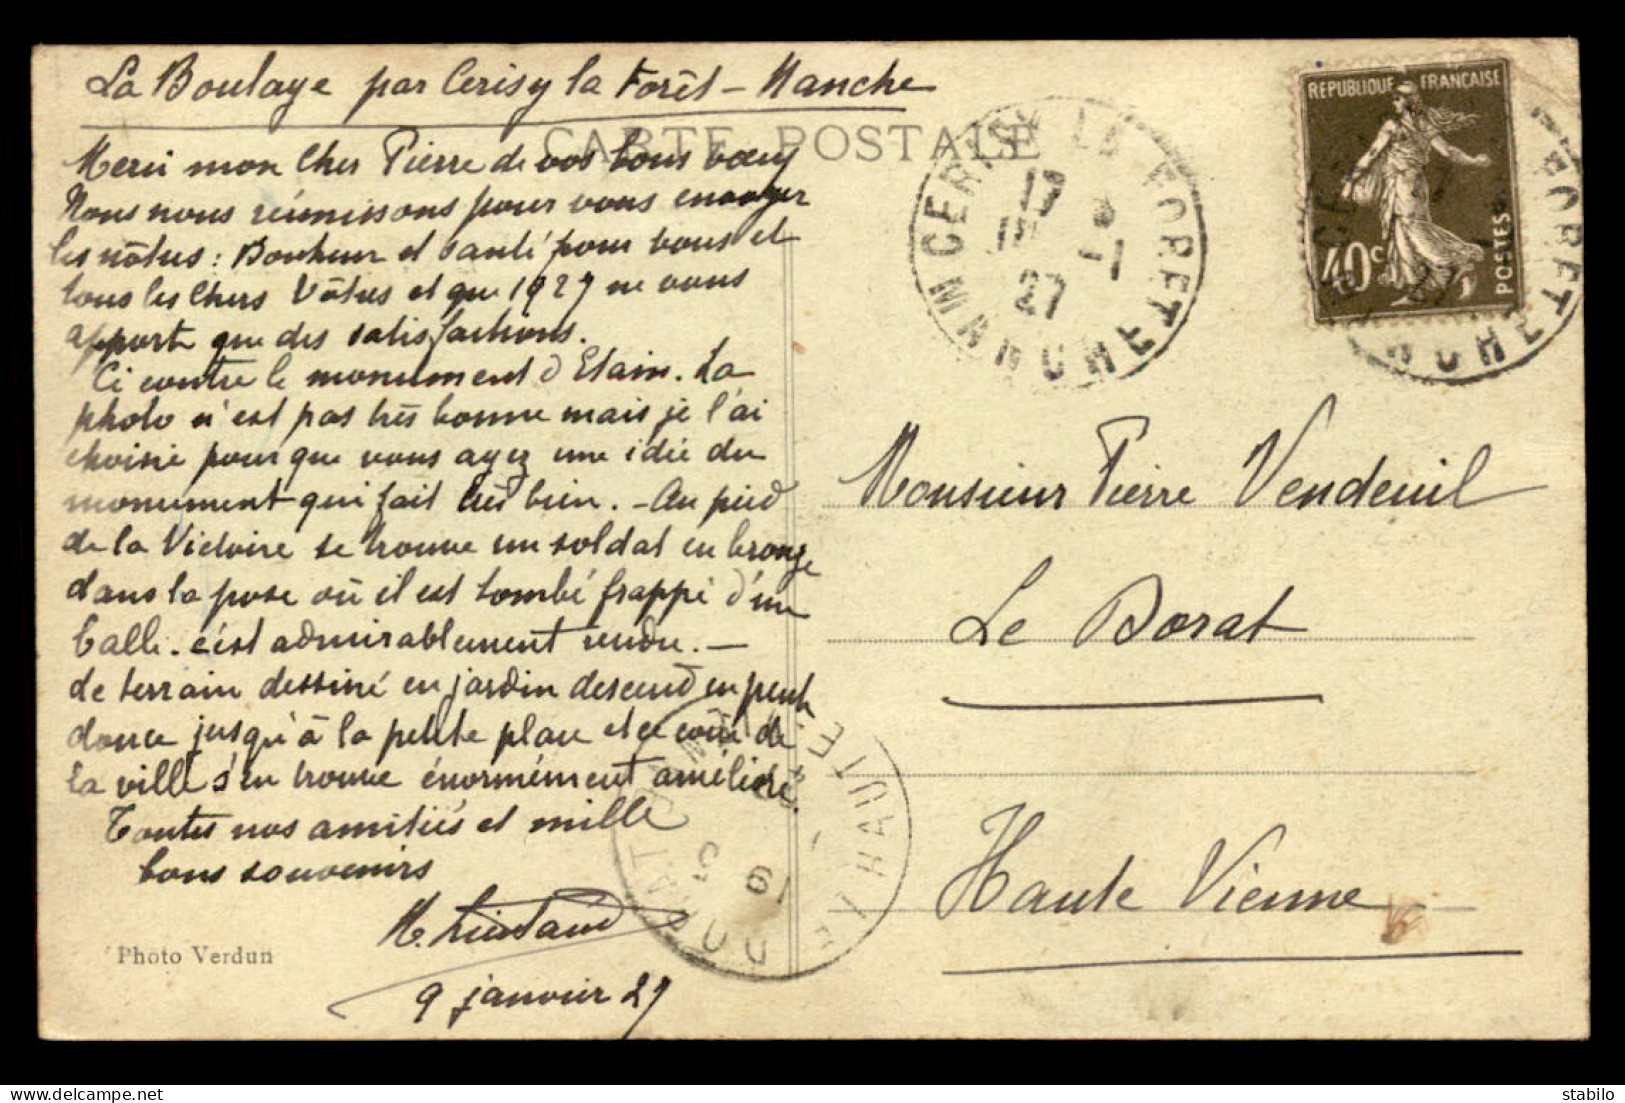 La Boulaye par Cerisy la Forêt - Manche
CARTE POSTALE
Merci mon Cher Pierre de vos bons vœux
Nous nous réunissons pour vous envoyer
les nôtres : Bonheur et santé pour vous et
tous les Chers Vôtres et que 1927 ne vous
apporte que des satisfactions.
Ci contre le monument d'Etain. La
photo n'est pas très bonne mais je l'ai
choisie pour que vous ayez une idée du
monument qui fait très bien. - Au pied
de la Victoire se trouve un soldat en bronze
dans la pose où il est tombé frappé d'une
balle. c'est admirablement rendu. -
Le terrain dessiné en jardin descend en pente
douce jusqu'à la petite place et ce coin de
la ville s'en trouve énormément amélioré.
Toutes nos amitiés et mille
bons souvenirs
M.
9 janvier 27
Photo Verdun
REPUBLIQUE FRANÇAISE
40c
POSTES
CERISY LA FORET
MANCHE
27
Monsieur Pierre Vendeuil
Le Dorat
Haute Vienne
HAUTE VIENNE